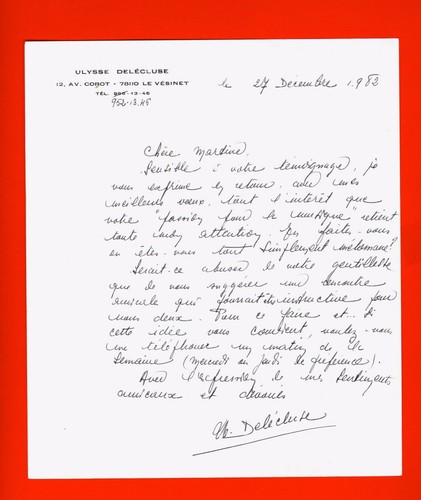 ULYSSE DELÉCLUSE
12, AV. COROT - 78110 LE VÉSINET
TÉL. 966-13-46
952.13.45
le 27 Décembre 1982
Chère Martine,
Sensible à votre témoignage, je
vous exprime en retour, avec mes
meilleurs voeux, tout l'intérêt que
votre "passion pour la musique" retient
toute mon attention. En faites-vous
ou êtes-vous tout simplement mélomane?
Serait-ce abuser de votre gentillesse
que de vous suggérer une rencontre
amicale qui pourrait être instructive pour
nous deux. Pour ce faire et... si
cette idée vous convient, voulez-vous
me téléphoner un matin de la
semaine (mercredi ou jeudi de préférence).
Avec l'expression de mes sentiments
amicaux et dévoués
Delécluse